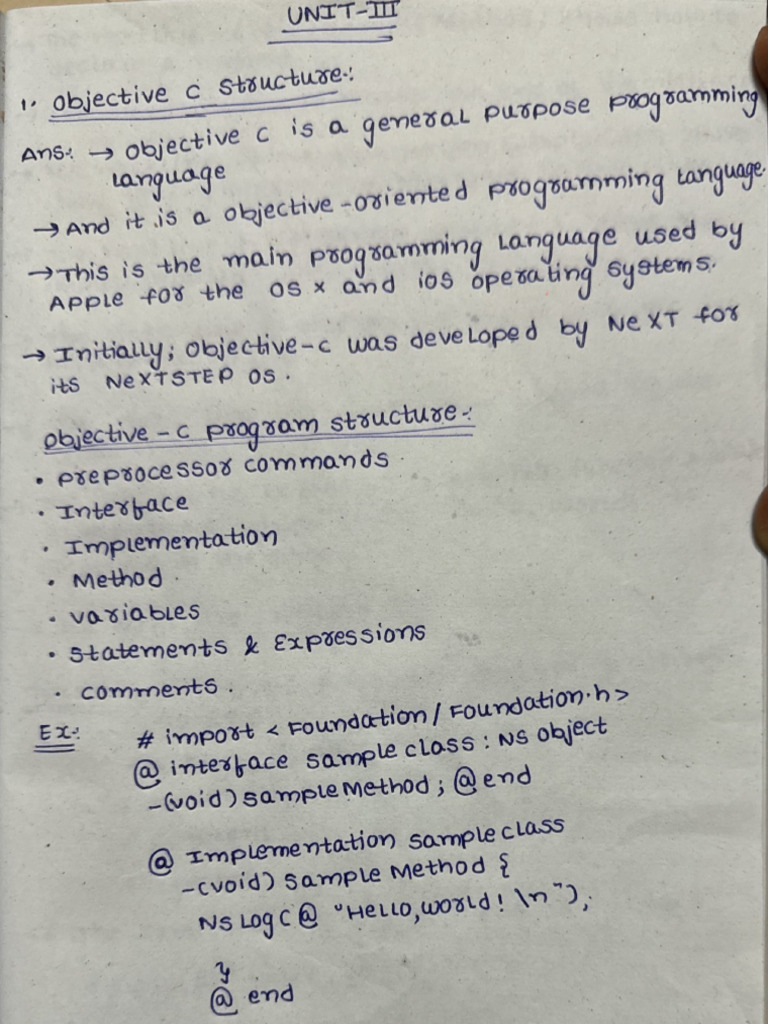 UNIT-III
1. Objective C Structure:
Ans: → Objective C is a general purpose programming
Language
→ And it is a objective-oriented programming Language.
→ This is the main programming Language used by
Apple for the OS X and ios operating systems.
→ Initially; Objective-C was developed by NeXT for
its NeXTSTEP OS.
Objective-C program structure:
• preprocessor commands
• Interface
• Implementation
• Method
• variables
• statements & Expressions
• comments.
Ex: # import < Foundation/Foundation.h>
@ interface sample class : NS object
-(void) sample Method ; @ end
@ Implementation sample class
-(void) sample Method {
NS Log(@ "Hello, world! \n");
}
@ end